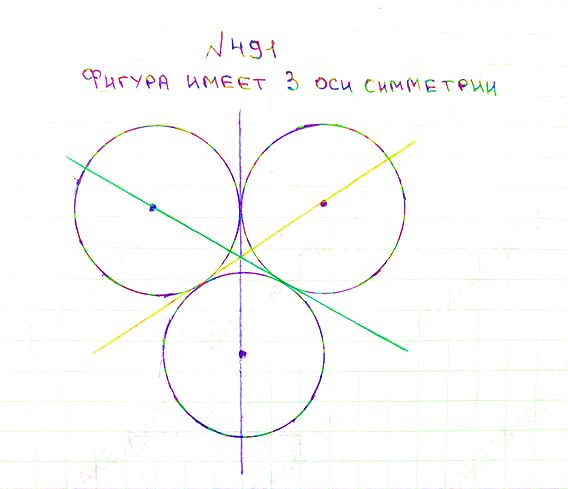 №491
ФИГУРА ИМЕЕТ 3 ОСИ СИММЕТРИИ